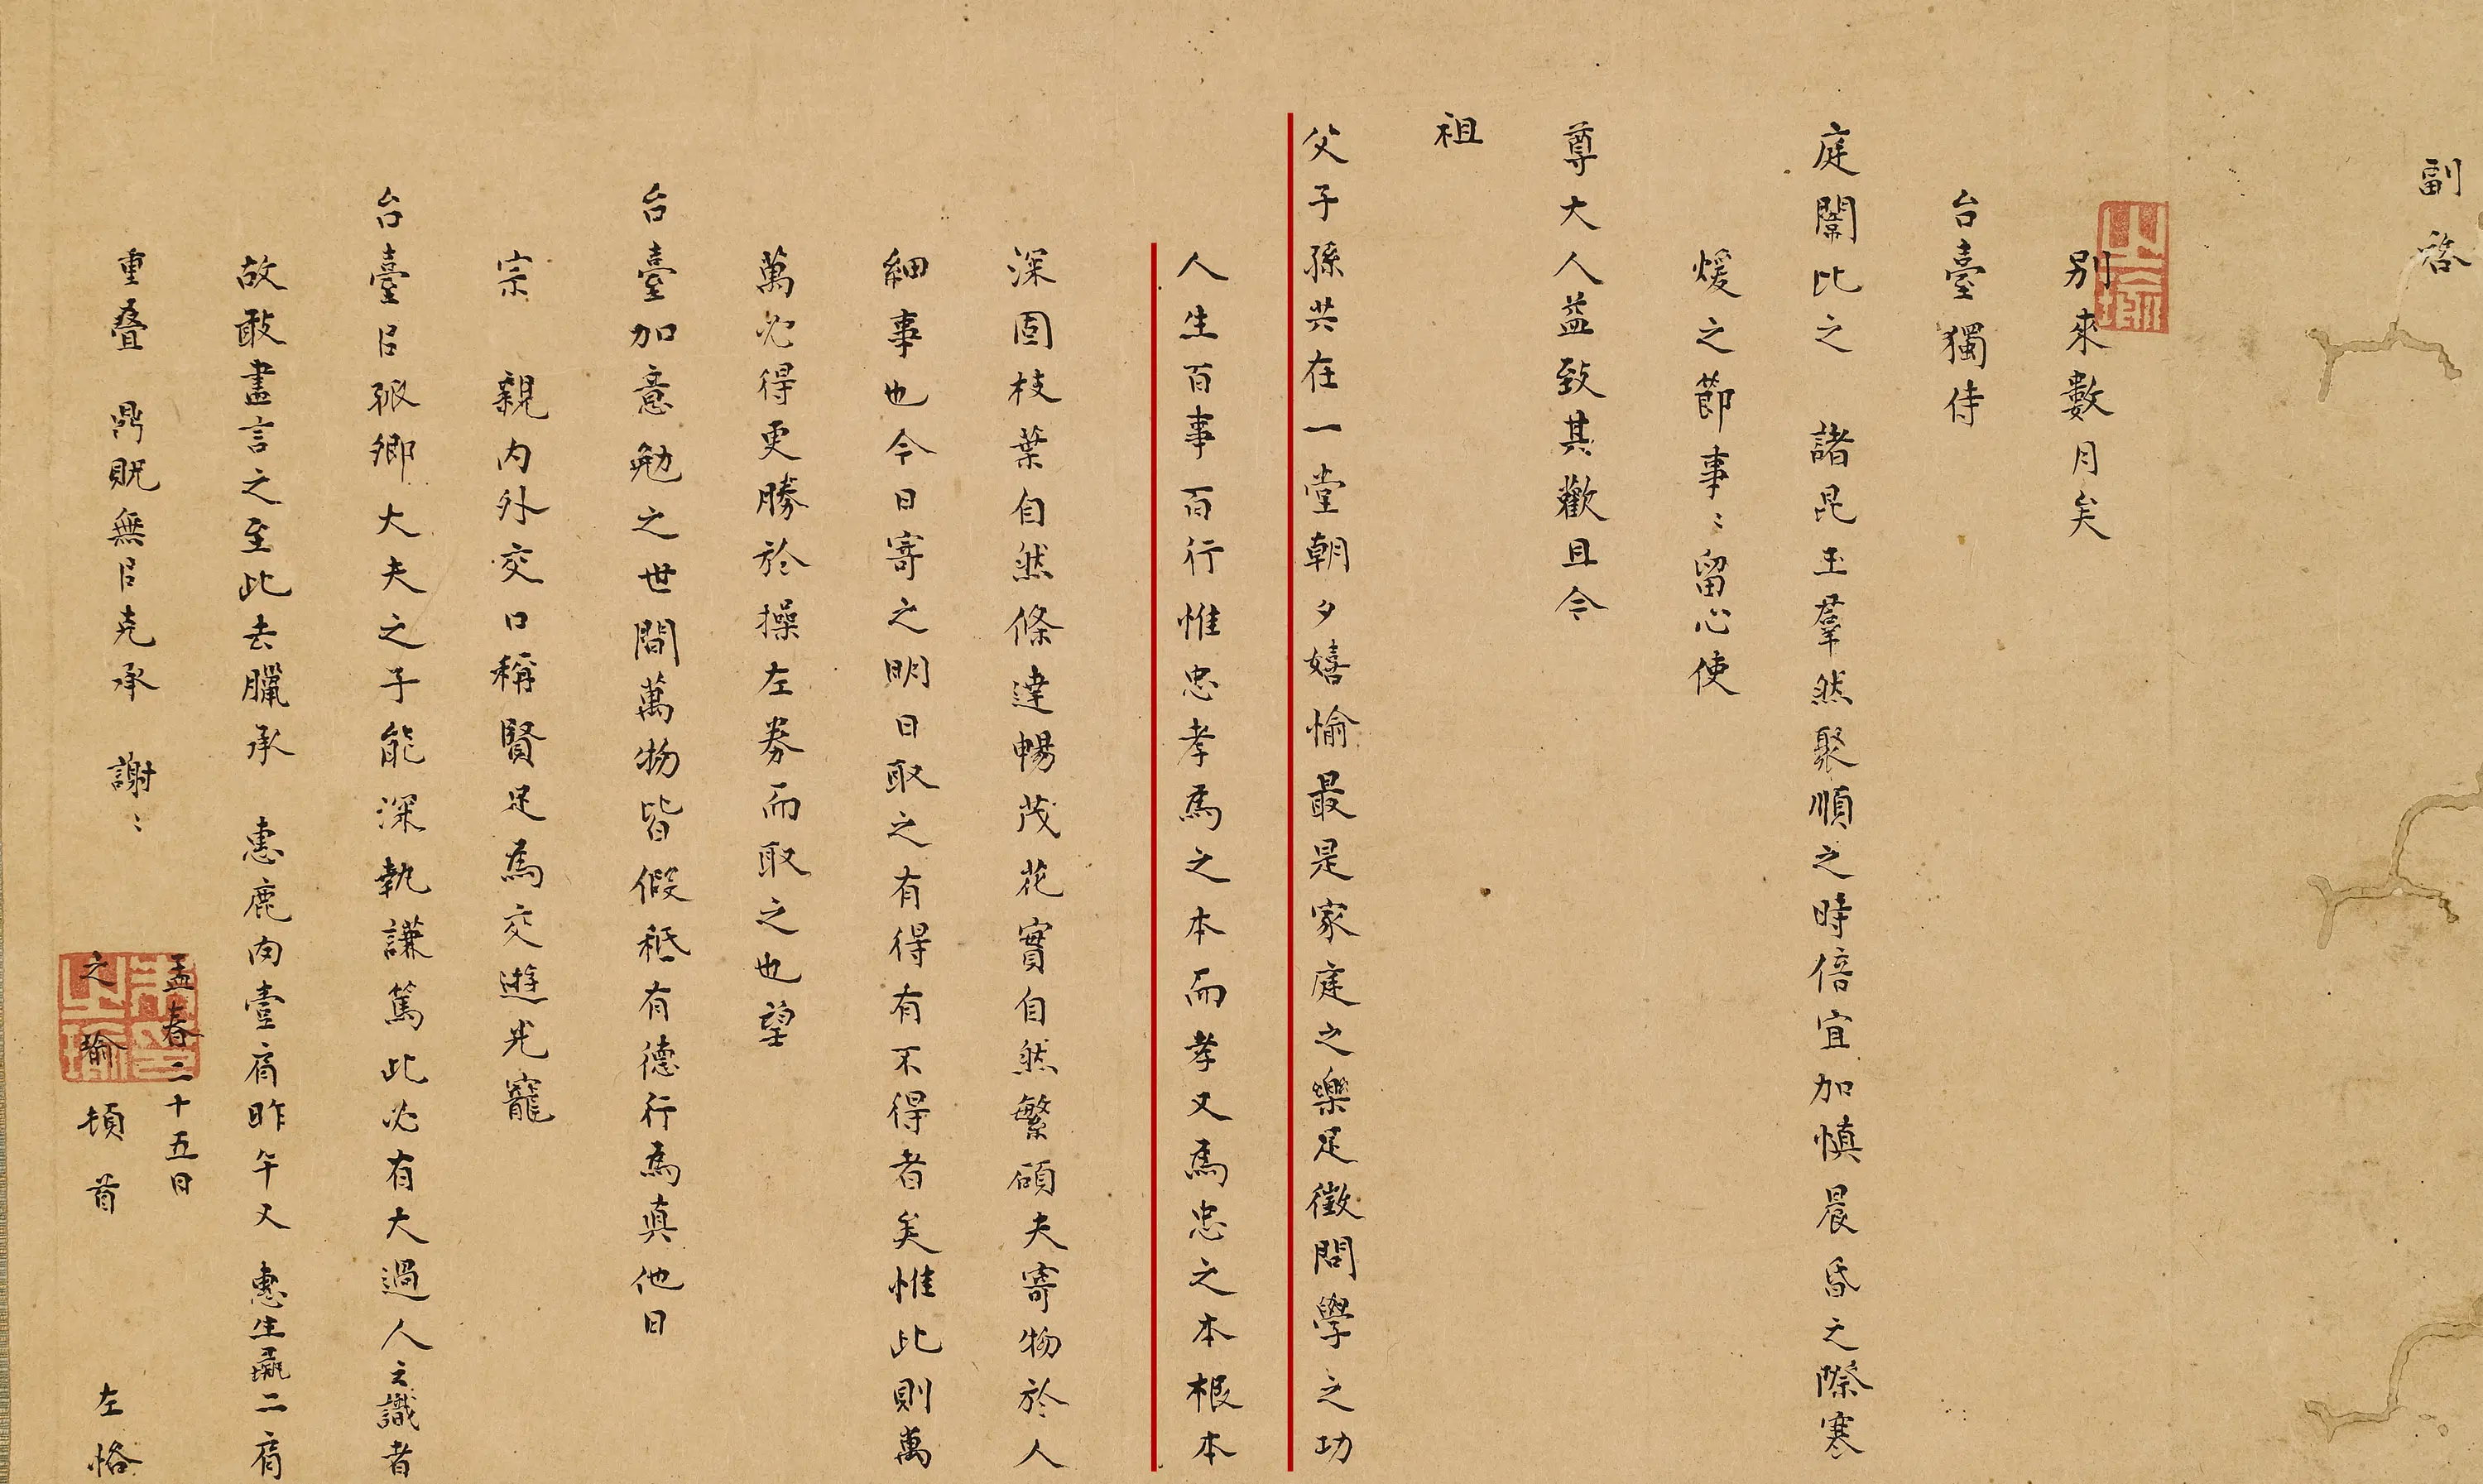 副啓
別來數月矣
台臺獨侍
庭闈比之 諸昆玉羣然聚順之時倍宜加慎晨昏之際寒
煖之節事〻留心使
尊大人益致其歡且令
祖
父子孫共在一堂朝夕嬉愉最是家庭之樂足徵問學之功
人生百事百行惟忠孝為之本而孝又為忠之本根本
深固枝葉自然條達暢茂花實自然繁碩夫寄物於人
細事也今日寄之明日取之有得有不得者矣惟此則萬
萬必得更勝於操左券而取之也望
台臺加意勉之世間萬物皆假秖有德行為真他日
宗 親內外交口稱賢足為交遊光寵
台臺㠯孤卿大夫之子能深執謙篤此必有大過人之識者
故敢盡言之至此去臘承 惠鹿肉壹肩昨午又 惠生彘二肩
重疊 鼎貺無㠯克承 謝〻
孟春二十五日
之瑜 頓首 左恪